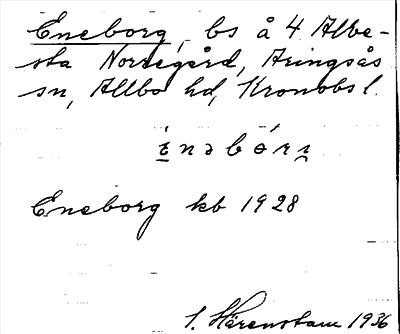 Eneborg, bs å 4 Albe-
sta Norregård, Aringsås
sn, Allbo hd, Kronobs l.
Eneborg kb 1928
S. Härenstam 1936